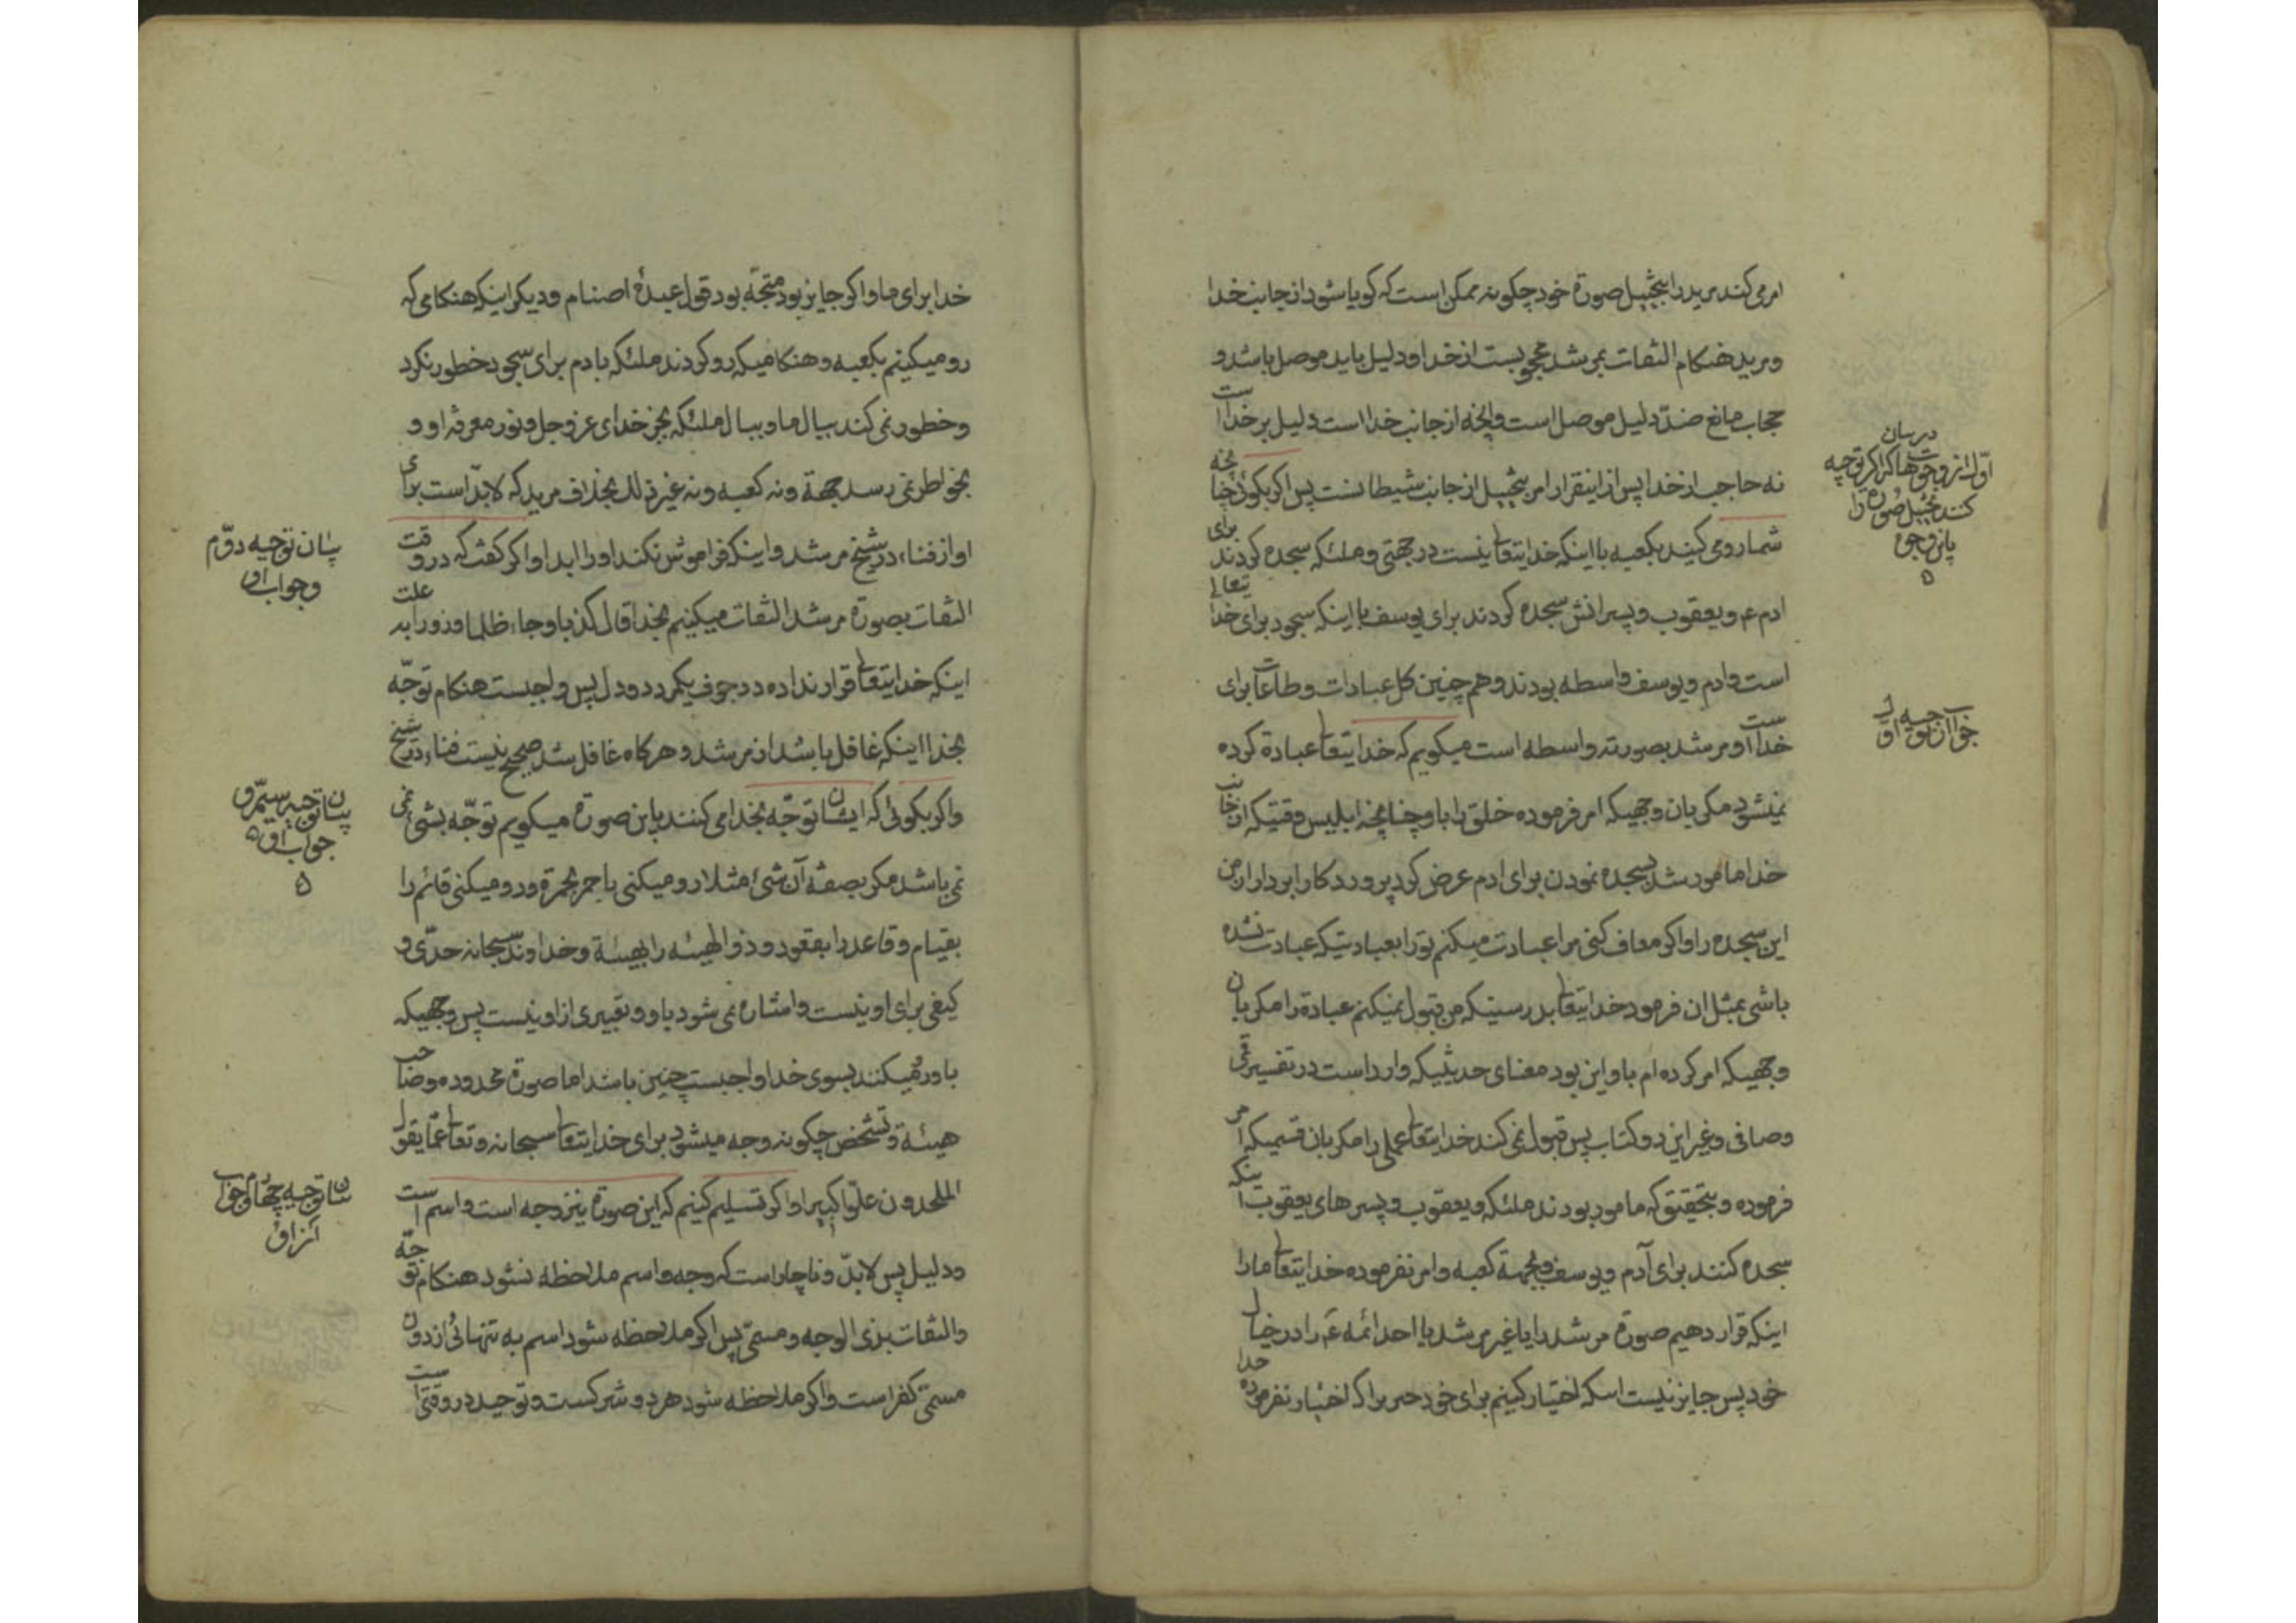 امر می‌کند مرید را بتخییل صورة خود چکونه ممکن است که کویا شود از جانب خدا
و مرید هنکام التفات بمرشد محجوبست از خدا و دلیل باید موصل باشد و
حجاب مانع ضدّ دلیل موصل است و انچه از جانب خدا است دلیل بر خدا است
نه حاجب از خدا پس از اینقرار امر بتخییل از جانب شیطانست پس اکر بکوئی چنانچه
شما رو می‌کنید بکعبه با اینکه خدایتعالی نیست در جهتی و ملئکه سجده کردند برای
ادم ع و یعقوب و پسرانش سجده کردند برای یوسف با اینکه سجود برای خدا یتعالی
است و ادم و یوسف واسطه بودند و هم چنین کل عبادات و طاعات برای
خدا است و مرشد بصورته واسطه است میکویم که خدایتعالی عبادة کرده
نمیشود مکر بان وجهیکه امر فرموده خلق را باو چنانچه ابلیس وقتیکه از جانب
خدا مامور شد بسجده نمودن برای ادم عرض کرد پروردکارا بردار از من
این سجده را و اکر معاف کنی مرا عبادت میکنم تو را بعبادتیکه عبادت نشده
باشی بمثل ان فرمود خدایتعالی بدرستیکه من قبول نمیکنم عبادة را مکر بان
وجهیکه امر کرده ام باو این بود معنای حدیثیکه وارد است در تفسیر قمی
و صافی و غیر این دو کتاب پس قبول نمی کند خدایتعالی عملی را مکر بان قسمیکه امر
فرموده و بتحقیق که مامور بودند ملئکه و یعقوب و پسرهای یعقوب اینکه
سجده کنند برای آدم و یوسف و بجهة کعبه و امر نفرموده خدایتعالی ما را
اینکه قرار دهیم صورة مرشد را یا غیر مرشد یا احد ائمه ع را در خیال
خود پس جایز نیست اینکه اختیار کنیم برای خود چیزی را که اختیار نفرموده خدا
در بیان
اوّل از وجوهها که اکر توجیه
کند تخییل صورة را
باین وجوه
جواب از توجیه اول
خدا برای ما و اکر جایز بود متجّه بود قول عبدهٔ اصنام و دیکر اینکه هنکامی که
رو میکنیم بکعبه و هنکامیکه رو کردند ملئکه بادم برای سجود خطور نکرد
و خطور نمی کند ببال ما و ببال ملئکه بجز خدای عز و جل و نور معرفة او و
بخواطر نمی رسد جهة و نه کعبه و نه غیر ذلك بخلاف مرید که لابدّ است برای
او از فناء در شیخ مرشد و اینکه فراموش نکند او را ابدا و اکر کفت که در وقت
التفات بصورة مرشد التفات میکنیم بخدا قال کذبا و جاء ظلما و زورا به علت
اینکه خدایتعالی قرار نداده در جوف یکمرد دو دل پس واجبست هنکام توجّه
بخدا اینکه غافل باشد از مرشد و هر کاه غافل شد صحیح نیست فناء در شیخ
و اکر بکوئی که ایشان توجّه بخدا می کنند باین صورة میکویم توجّه بشئ نمی
نمی باشد مکر بصفة آن شئ مثلا رو میکنی باحمر بحمرة و رو میکنی قائم را
بقیام و قاعد را بقعود و ذو الهیئه را بهیئة و خداوند سبحانه حدّی و
کیفی برای او نیست و اشاره نمی شود باو و تعبیری از او نیست پس وجهیکه
باو رو میکنند بسوی خدا واجبست چنین باشد اما صورة محدوده و صاحب
هیئة و تشخص چکونه وجه میشود برای خدایتعالی سبحانه و تعالی عمّا یقول
الملحدون علوّا کبیرا و اکر تسلیم کنیم که این صورة نیز وجه است و اسم است
و دلیل پس لابدّ و ناچار است که وجه و اسم ملاحظه نشود هنکام توجّه
و التفات بذی الوجه و مسمّی پس اکر ملاحظه شود اسم به تنهائی از دون
مسمّی کفر است و اکر ملاحظه شود هر دو شرکست و توحید در وقتی است
بیان توجیه دوّم
و جواب او
بیان توجیه سیّم و
جواب او
بیان توجیه چهارم و جواب
از او